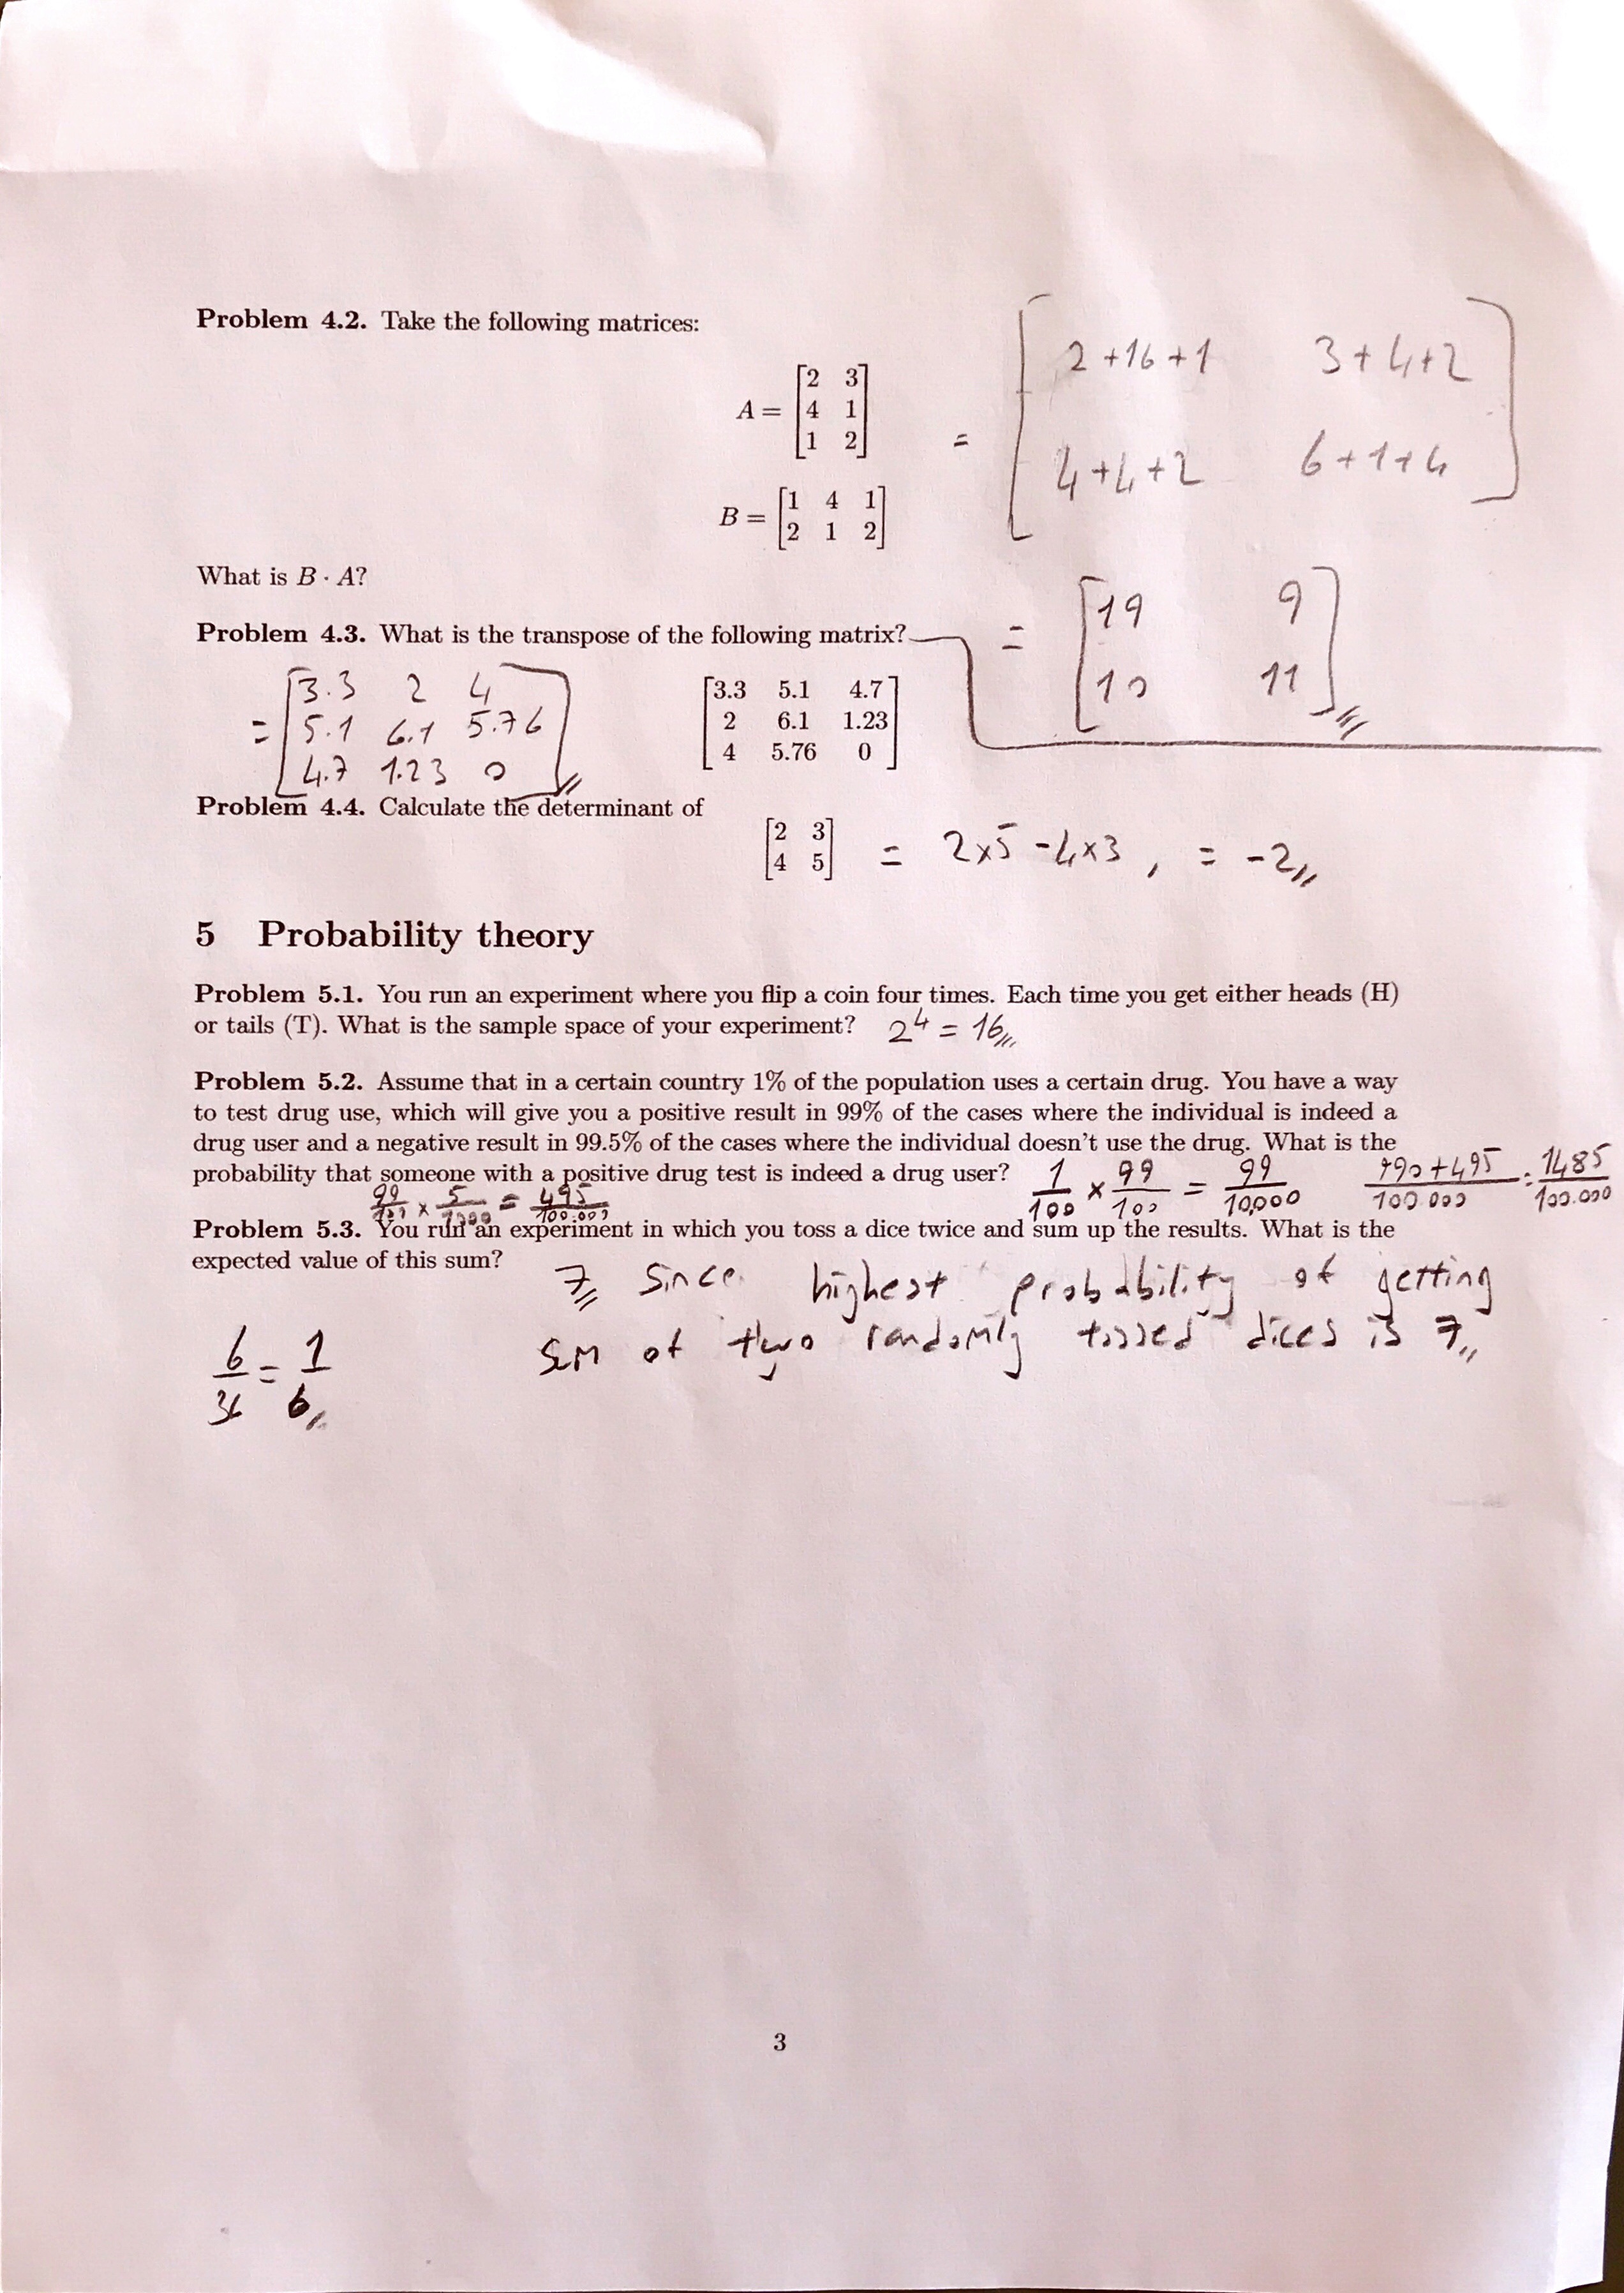 Problem 4.2. Take the following matrices:
A = [2 3
4 1
1 2]
B = [1 4 1
2 1 2]
= [2+16+1 3+4+2
4+4+2 6+1+4]
What is B · A?
= [19 9
10 11]
Problem 4.3. What is the transpose of the following matrix?
[3.3 5.1 4.7
2 6.1 1.23
4 5.76 0]
= [3.3 2 4
5.1 6.1 5.76
4.7 1.23 0]
Problem 4.4. Calculate the determinant of
[2 3
4 5] = 2x5 - 4x3, = -2
5 Probability theory
Problem 5.1. You run an experiment where you flip a coin four times. Each time you get either heads (H)
or tails (T). What is the sample space of your experiment? 2^4 = 16
Problem 5.2. Assume that in a certain country 1% of the population uses a certain drug. You have a way
to test drug use, which will give you a positive result in 99% of the cases where the individual is indeed a
drug user and a negative result in 99.5% of the cases where the individual doesn't use the drug. What is the
probability that someone with a positive drug test is indeed a drug user? 1/100 x 99/100 = 99/10,000 990+495/100.000 = 1485/100.000
99/100 x 5/1000 = 495/100.000
Problem 5.3. You run an experiment in which you toss a dice twice and sum up the results. What is the
expected value of this sum?
7 since highest probability of getting
sum of two randomly tossed dices is 7
6/36 = 1/6
3